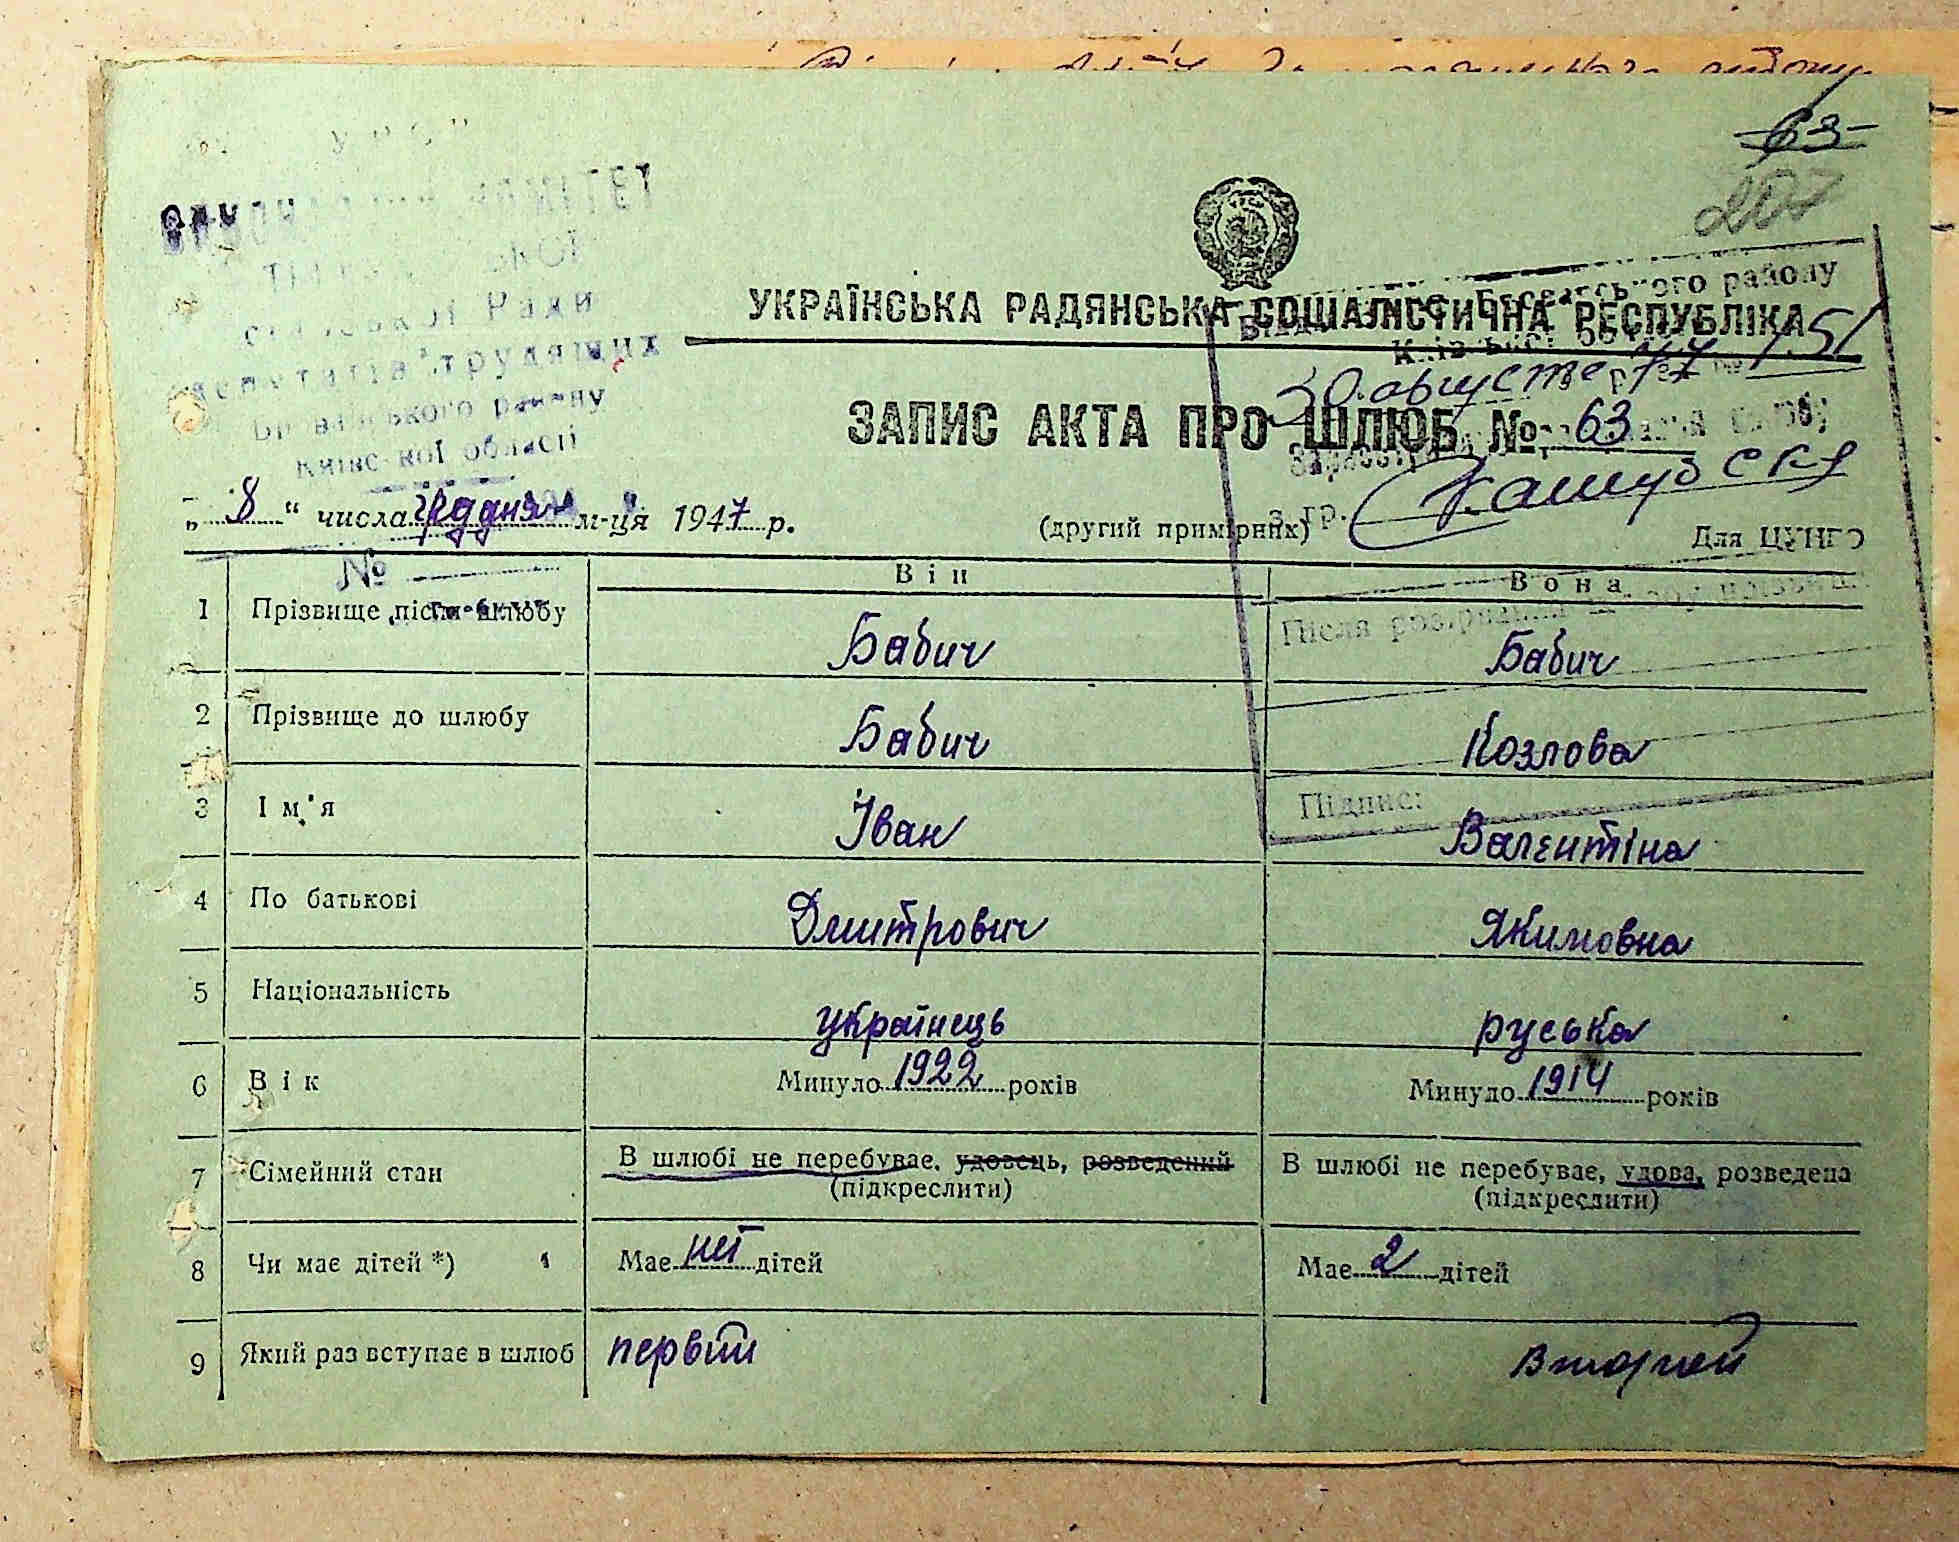 63
207
КОМІТЕТ
Ради
депутатів трудящих
Броварського району
Київської області
УКРАЇНСЬКА РАДЯНСЬКА СОЦІАЛІСТИЧНА РЕСПУБЛІКА
району
30 августе 77 р. 151
ЗАПИС АКТА ПРО ШЛЮБ № 63
з гр.
„ 8 “ числа грудня м-ця 1947 р.
(другий примірник)
Для ЦУНГО
№
Він Вона
1 Прізвище після шлюбу Бабич Бабич
Після
2 Прізвище до шлюбу Бабич Козлова
3 Ім'я Іван Валентіна
Підпис:
4 По батькові Дмитрович Якимовна
5 Національність українець руська
6 Вік Минуло 1922 років Минуло 1914 років
7 Сімейний стан В шлюбі не перебуває, удовець, розведений В шлюбі не перебуває, удова, розведена
(підкреслити) (підкреслити)
8 Чи має дітей *) Має нет дітей Має 2 дітей
9 Який раз вступає в шлюб первий второй